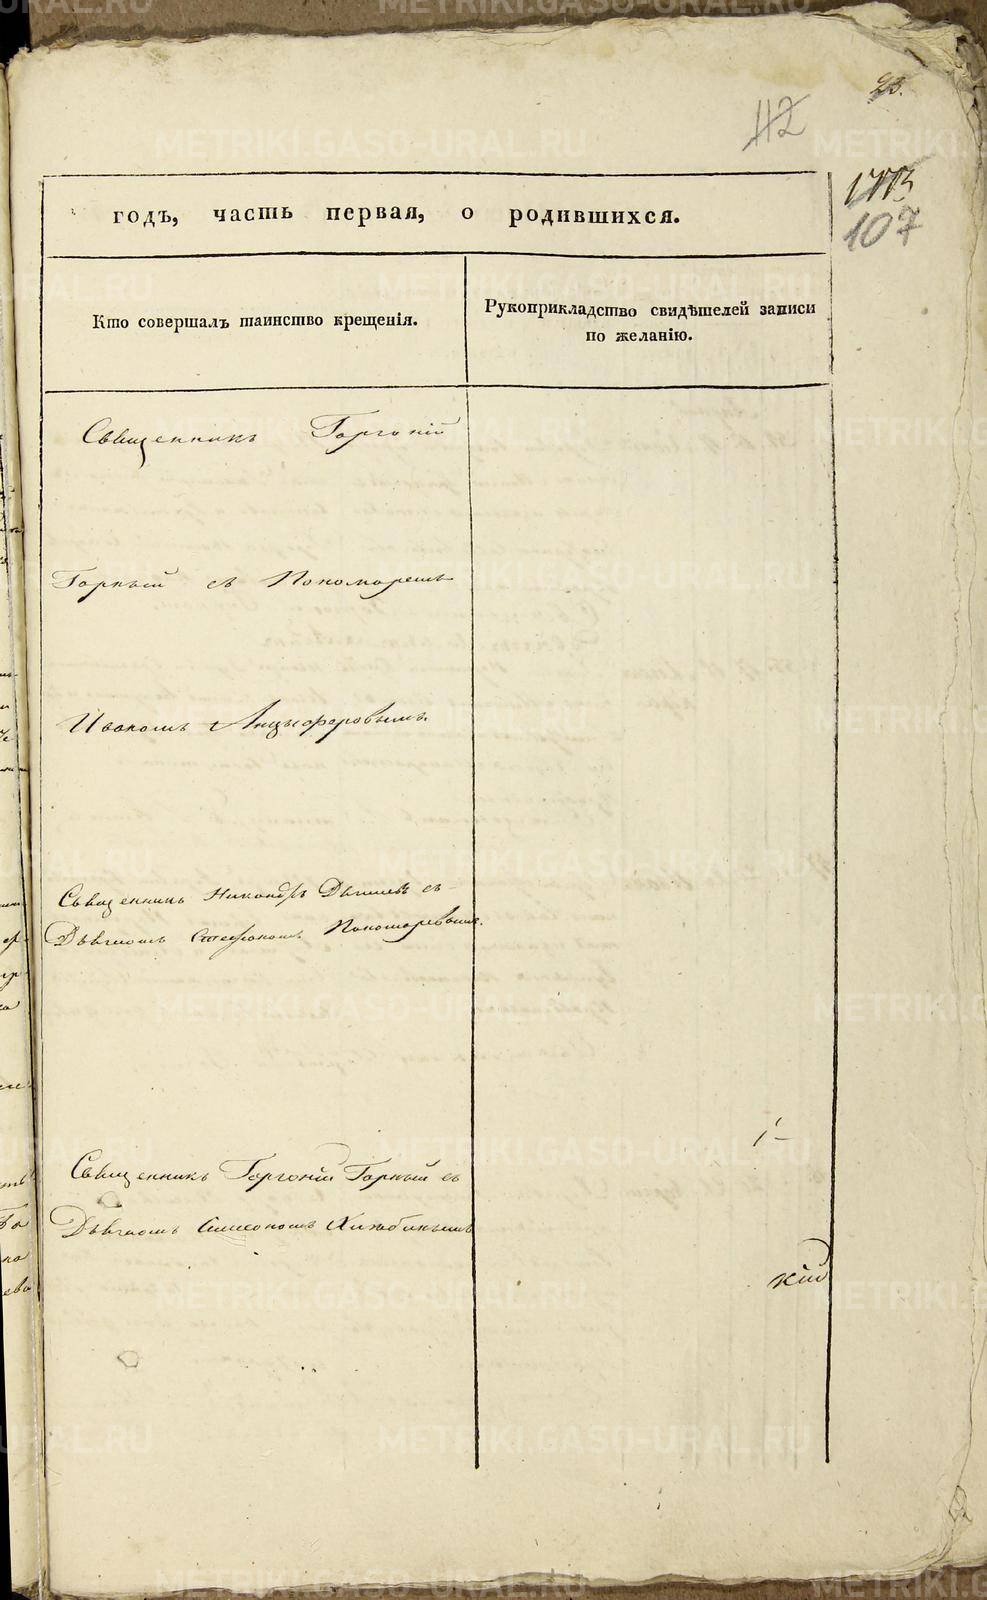 23.
112
107
годъ, часть первая, о родившихся.
Кто совершалъ таинство крещенія.
Рукоприкладство свидѣтелей записи
по желанію.
Священникъ Горгоній
Горный съ Пономаремъ
Иваномъ Анцыферовымъ.
Священникъ Никандръ съ
Дьячкомъ Стефаномъ Пономаревымъ.
Священникъ Горгоній Горный съ
Дьячкомъ Симеономъ Хлюбинымъ
кій
METRIKI.GASO-URAL.RU